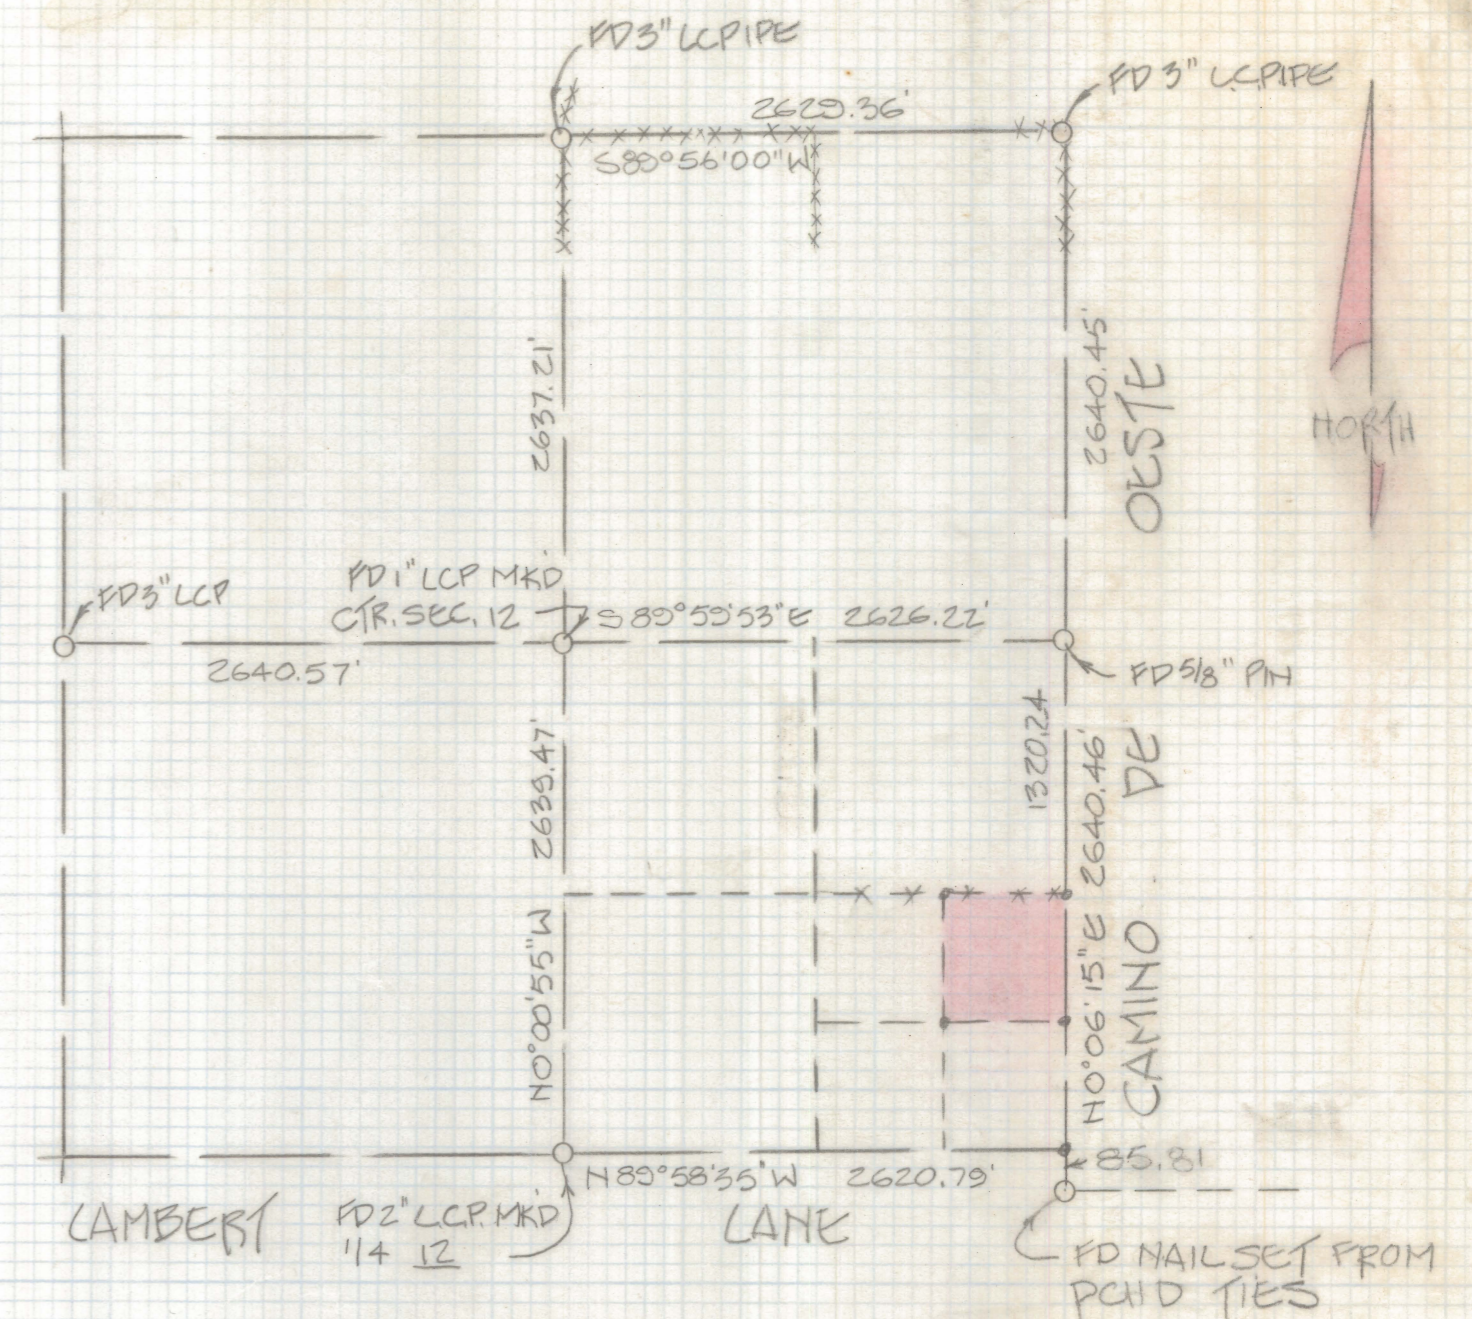 FD 3" LCPIPE
FD 3" L.C.PIPE
2629.36'
S89°56'00"W
2637.21'
2640.45'
OESTE
NORTH
FD 3" LCP
FD 1" LCP MKD
CTR. SEC. 12
S 89°59'53"E 2626.22'
2640.57'
FD 5/8" PIN
2639.47'
1320.24
2640.46'
DE
N0°00'55"W
N0°06'15"E
CAMINO
85.81
N89°58'35"W 2620.79'
LAMBERT
LANE
FD 2" L.C.P. MKD
1/4 12
FD NAIL SET FROM
PCHD TIES